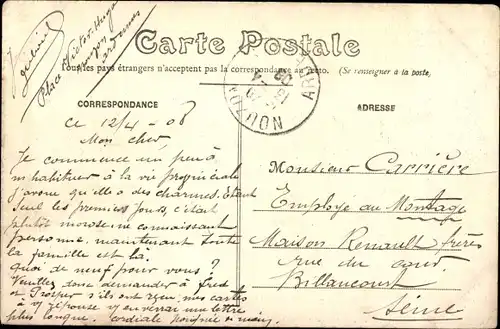 Gabriel
Place Victor Hugo
Mouzon
Ardennes
Carte Postale
Tous les pays étrangers n'acceptent pas la correspondance au recto. (Se renseigner à la poste)
MOUZON
CORRESPONDANCE
ADRESSE
Ce 12/4 - 08
Mon cher,
Je commence un peu à
m'habituer à la vie provinciale
j'avoue qu'elle a des charmes. Etant
seul les premiers jours, c'était
plutôt morose ne connaissant
personne, maintenant toute
la famille est là.
Quoi de neuf pour vous?
Veuillez donc demander à Fred
ou Prosper s'ils ont reçu mes cartes
à réponse j'enverrai une lettre
plus longue. Cordiale poignée de main,
Monsieur Carrière
Employé au Montage
Maison Renault frères
rue du cours
Billancourt
Seine